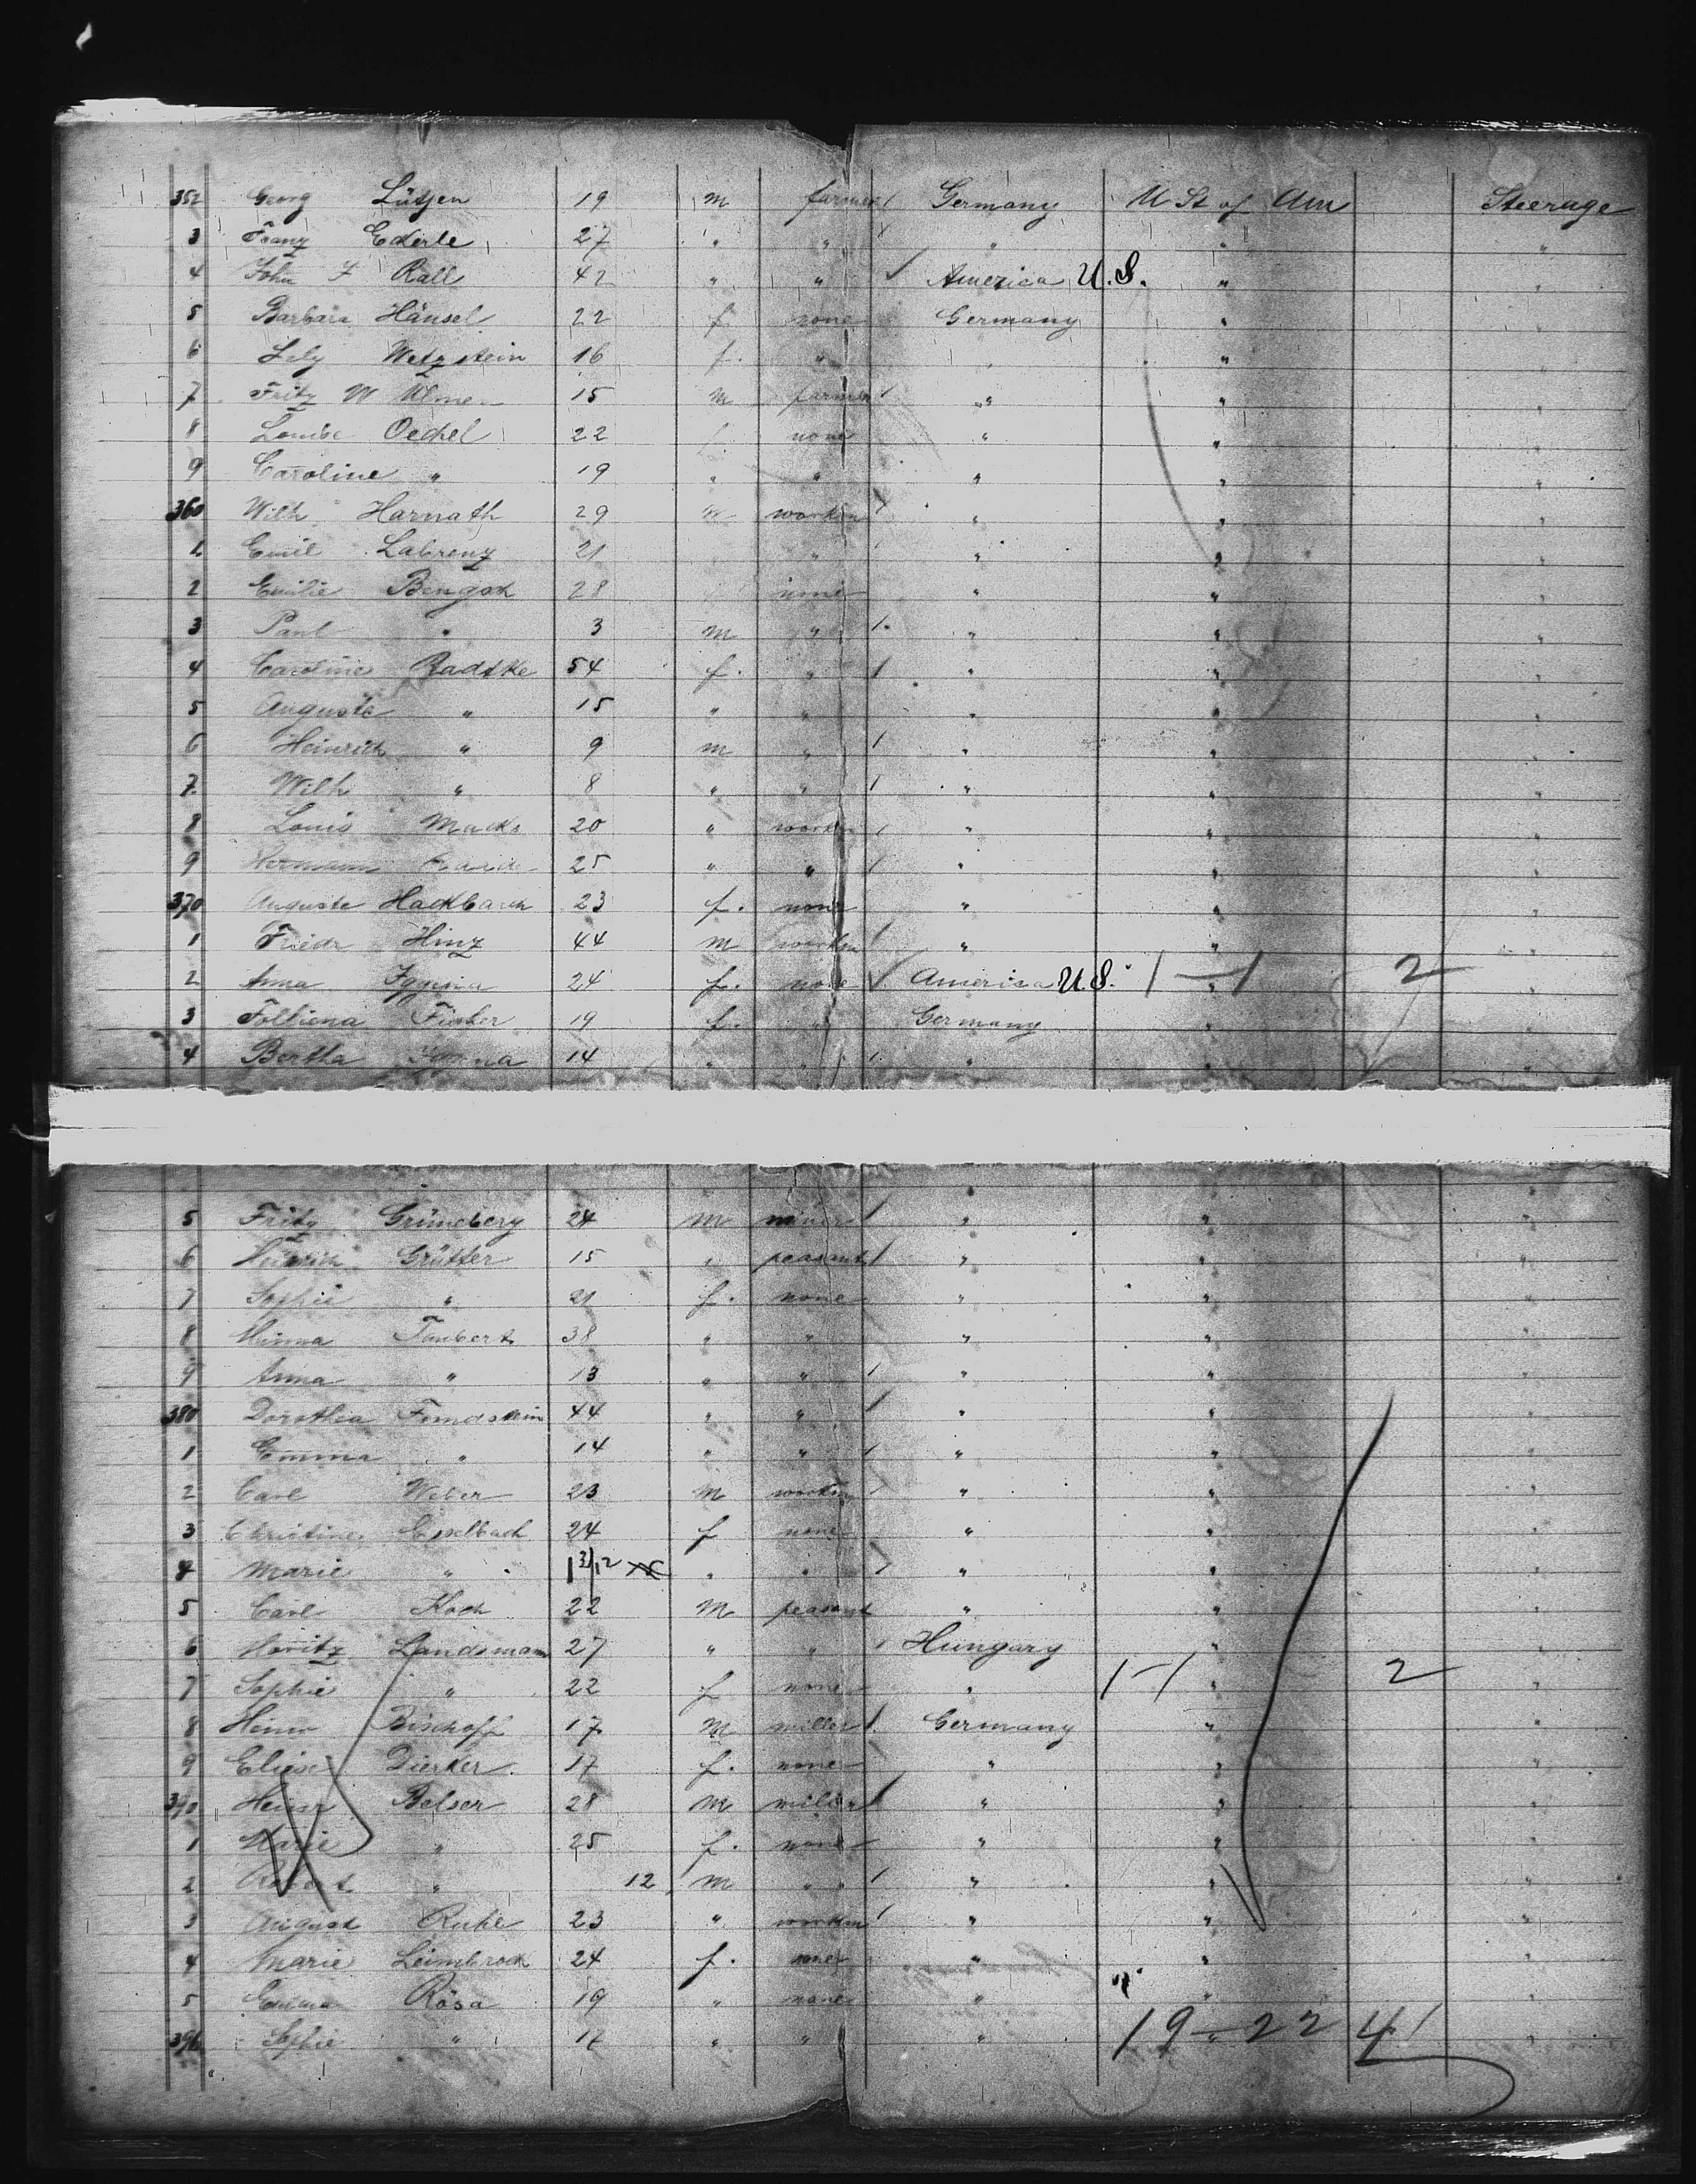 352 Georg Lütjen 19 m farmer / Germany U St of Am Steerage
3 Franz Ederle 27 " " / " " "
4 John F Rall 42 " " ✓ America U.S. " "
5 Barbara Hänsel 22 f none Germany " "
6 Lily Wetzstein 16 f. " " " "
7 Fritz W Ulmer 15 m farmer / " " "
8 Louise Oechel 22 f none " " "
9 Caroline " 19 " " " " "
360 Wilh Harnath 29 m worker " " "
1 Emil Labrenz 21 " / " " "
2 Emilie 28 none " " "
3 Paul " 3 m " / " " "
4 Caroline Radtke 54 f. " / " " "
5 Auguste " 15 " " " " "
6 Heinrich " 9 m " / " " "
7 Wilh " 8 " " / " " "
8 Louis Macks 20 " worker / " " "
9 Hermann 25 " " / " " "
370 Auguste Hackbarth 23 f. none " " "
1 Friedr Hinz 44 m worker / " " "
2 Anna 24 f. none ✓ America U.S. 1 – 1 " 2 "
3 Fischer 19 f. " Germany " "
4 Bertha 14 " " / " " "
5 Fritz Grüneberg 24 m miner / " " "
6 Heinrich Grütter 15 " peasant / " " "
7 Sophie " 21 f. none " " "
8 Minna Taubert 38 " " " " "
9 Anna " 13 " " / " " "
380 Dorothea 44 " " / " " "
1 Emma " 14 " " / " " "
2 Carl Weber 23 m worker " " "
3 Christine Esselbach 24 f none " " "
4 Marie " 1 3/12 " " " " "
5 Carl Koch 22 m peasant " " "
6 Moritz Landsmann 27 " " / Hungary " "
7 Sophie " 22 f none " 1-1 " 2 "
8 Heinr Bischoff 17 m miller / Germany " "
9 Elise Dierker 17 f. none " " "
390 Heinr Belser 28 m miller / " " "
1 Marie " 25 f. none " " "
2 Robert " 12 m " / " " "
3 August Ruhe 23 " worker / " " "
4 Marie Leimbrock 24 f. none " " "
5 Emma Rösa 19 " none " " "
396 Sophie " " " " 19 – 22 41 "